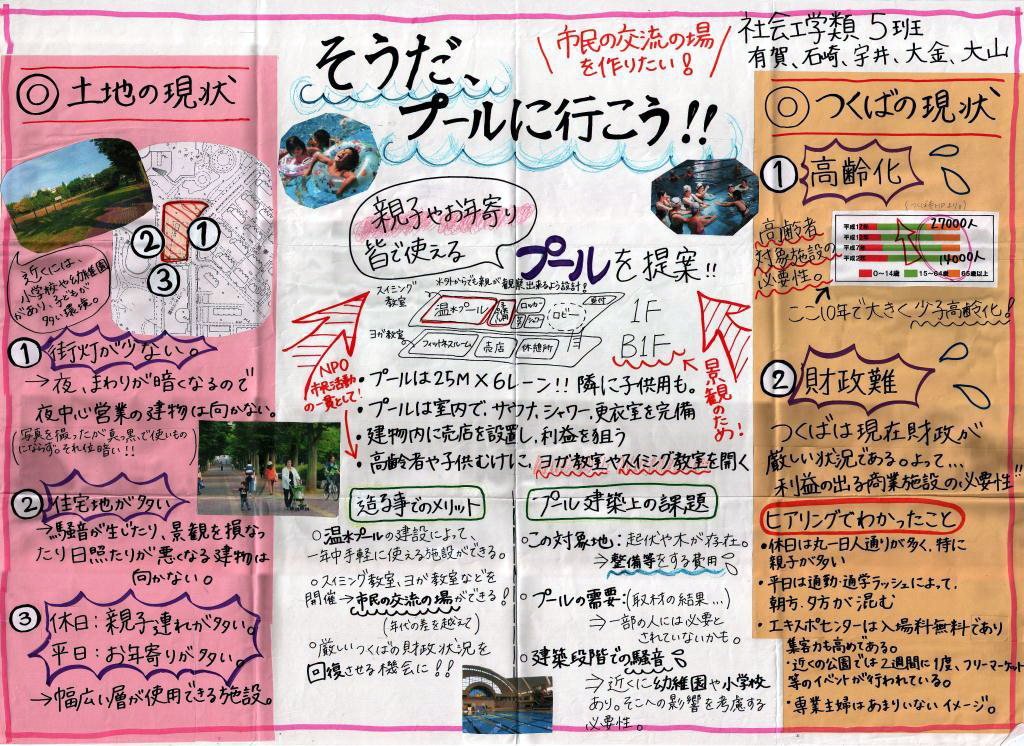 そうだ、
プールに行こう!!
市民の交流の場
を作りたい!
社会工学類 5班
有賀、石崎、宇井、大金、大山
◎土地の現状
近くには、
小学校や幼稚園
があり、子どもが
多い環境。
②
①
③
①街灯が少ない。
→夜、まわりが暗くなるので
夜中心営業の建物は向かない。
(写真を撮ったが真っ黒で使いもの
にならず。それ位暗い!!)
②住宅地が多い
→騒音が生じたり、景観を損な
ったり日照たりが悪くなる建物は
向かない。
③休日:親子連れが多い。
平日:お年寄りが多い。
→幅広い層が使用できる施設。
親子やお年寄り
皆で使える
プールを提案!!
※外からでも親が観察出来るよう設計!
スイミング
教室
温水プール
ロッカー
シャワー
ロビー
受付
1F
ヨガ教室
フィットネスルーム
売店
休憩所
B1F
NPO
市民活動
の一貫として!
景観のため!
・プールは25M×6レーン!!隣に子供用も。
・プールは室内で、サウナ、シャワー、更衣室を完備
・建物内に売店を設置し、利益を狙う
・高齢者や子供むけに、ヨガ教室やスイミング教室を開く
造る事でのメリット
○温水プールの建設によって、
一年中手軽に使える施設ができる。
○スイミング教室、ヨガ教室などを
開催→市民の交流の場ができる!
(年代の差を越えて)
○厳しいつくばの財政状況を
回復させる機会に!!
プール建築上の課題
○この対象地:起伏や木が存在。
⇒整備等をする費用
○プールの需要:(取材の結果…)
⇒一部の人には必要と
されていないかも。
○建築段階での騒音
⇒近くに幼稚園や小学校
あり。そこへの影響を考慮する
必要性。
◎つくばの現状
①高齢化
(つくば市HPより)
高齢者
対象施設の
必要性。
平成17年
平成12年
平成7年
平成2年
27000人
14000人
0~14歳
15~64歳
65歳以上
ここ10年で大きく少子高齢化!
②財政難
つくばは現在財政が
厳しい状況である。よって…
利益の出る商業施設の必要性!!
ヒアリングでわかったこと
・休日は丸一日人通りが多く、特に
親子が多い
・平日は通勤・通学ラッシュによって、
朝方、夕方が混む
・エキスポセンターは入場料無料であり
集客力も高めである。
・近くの公園では2週間に1度、フリーマーケット
等のイベントが行われている。
・専業主婦はあまりいないイメージ。